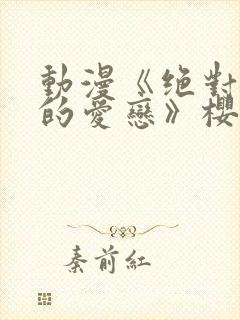 動漫《絕對
的愛戀》櫻
秦前紅